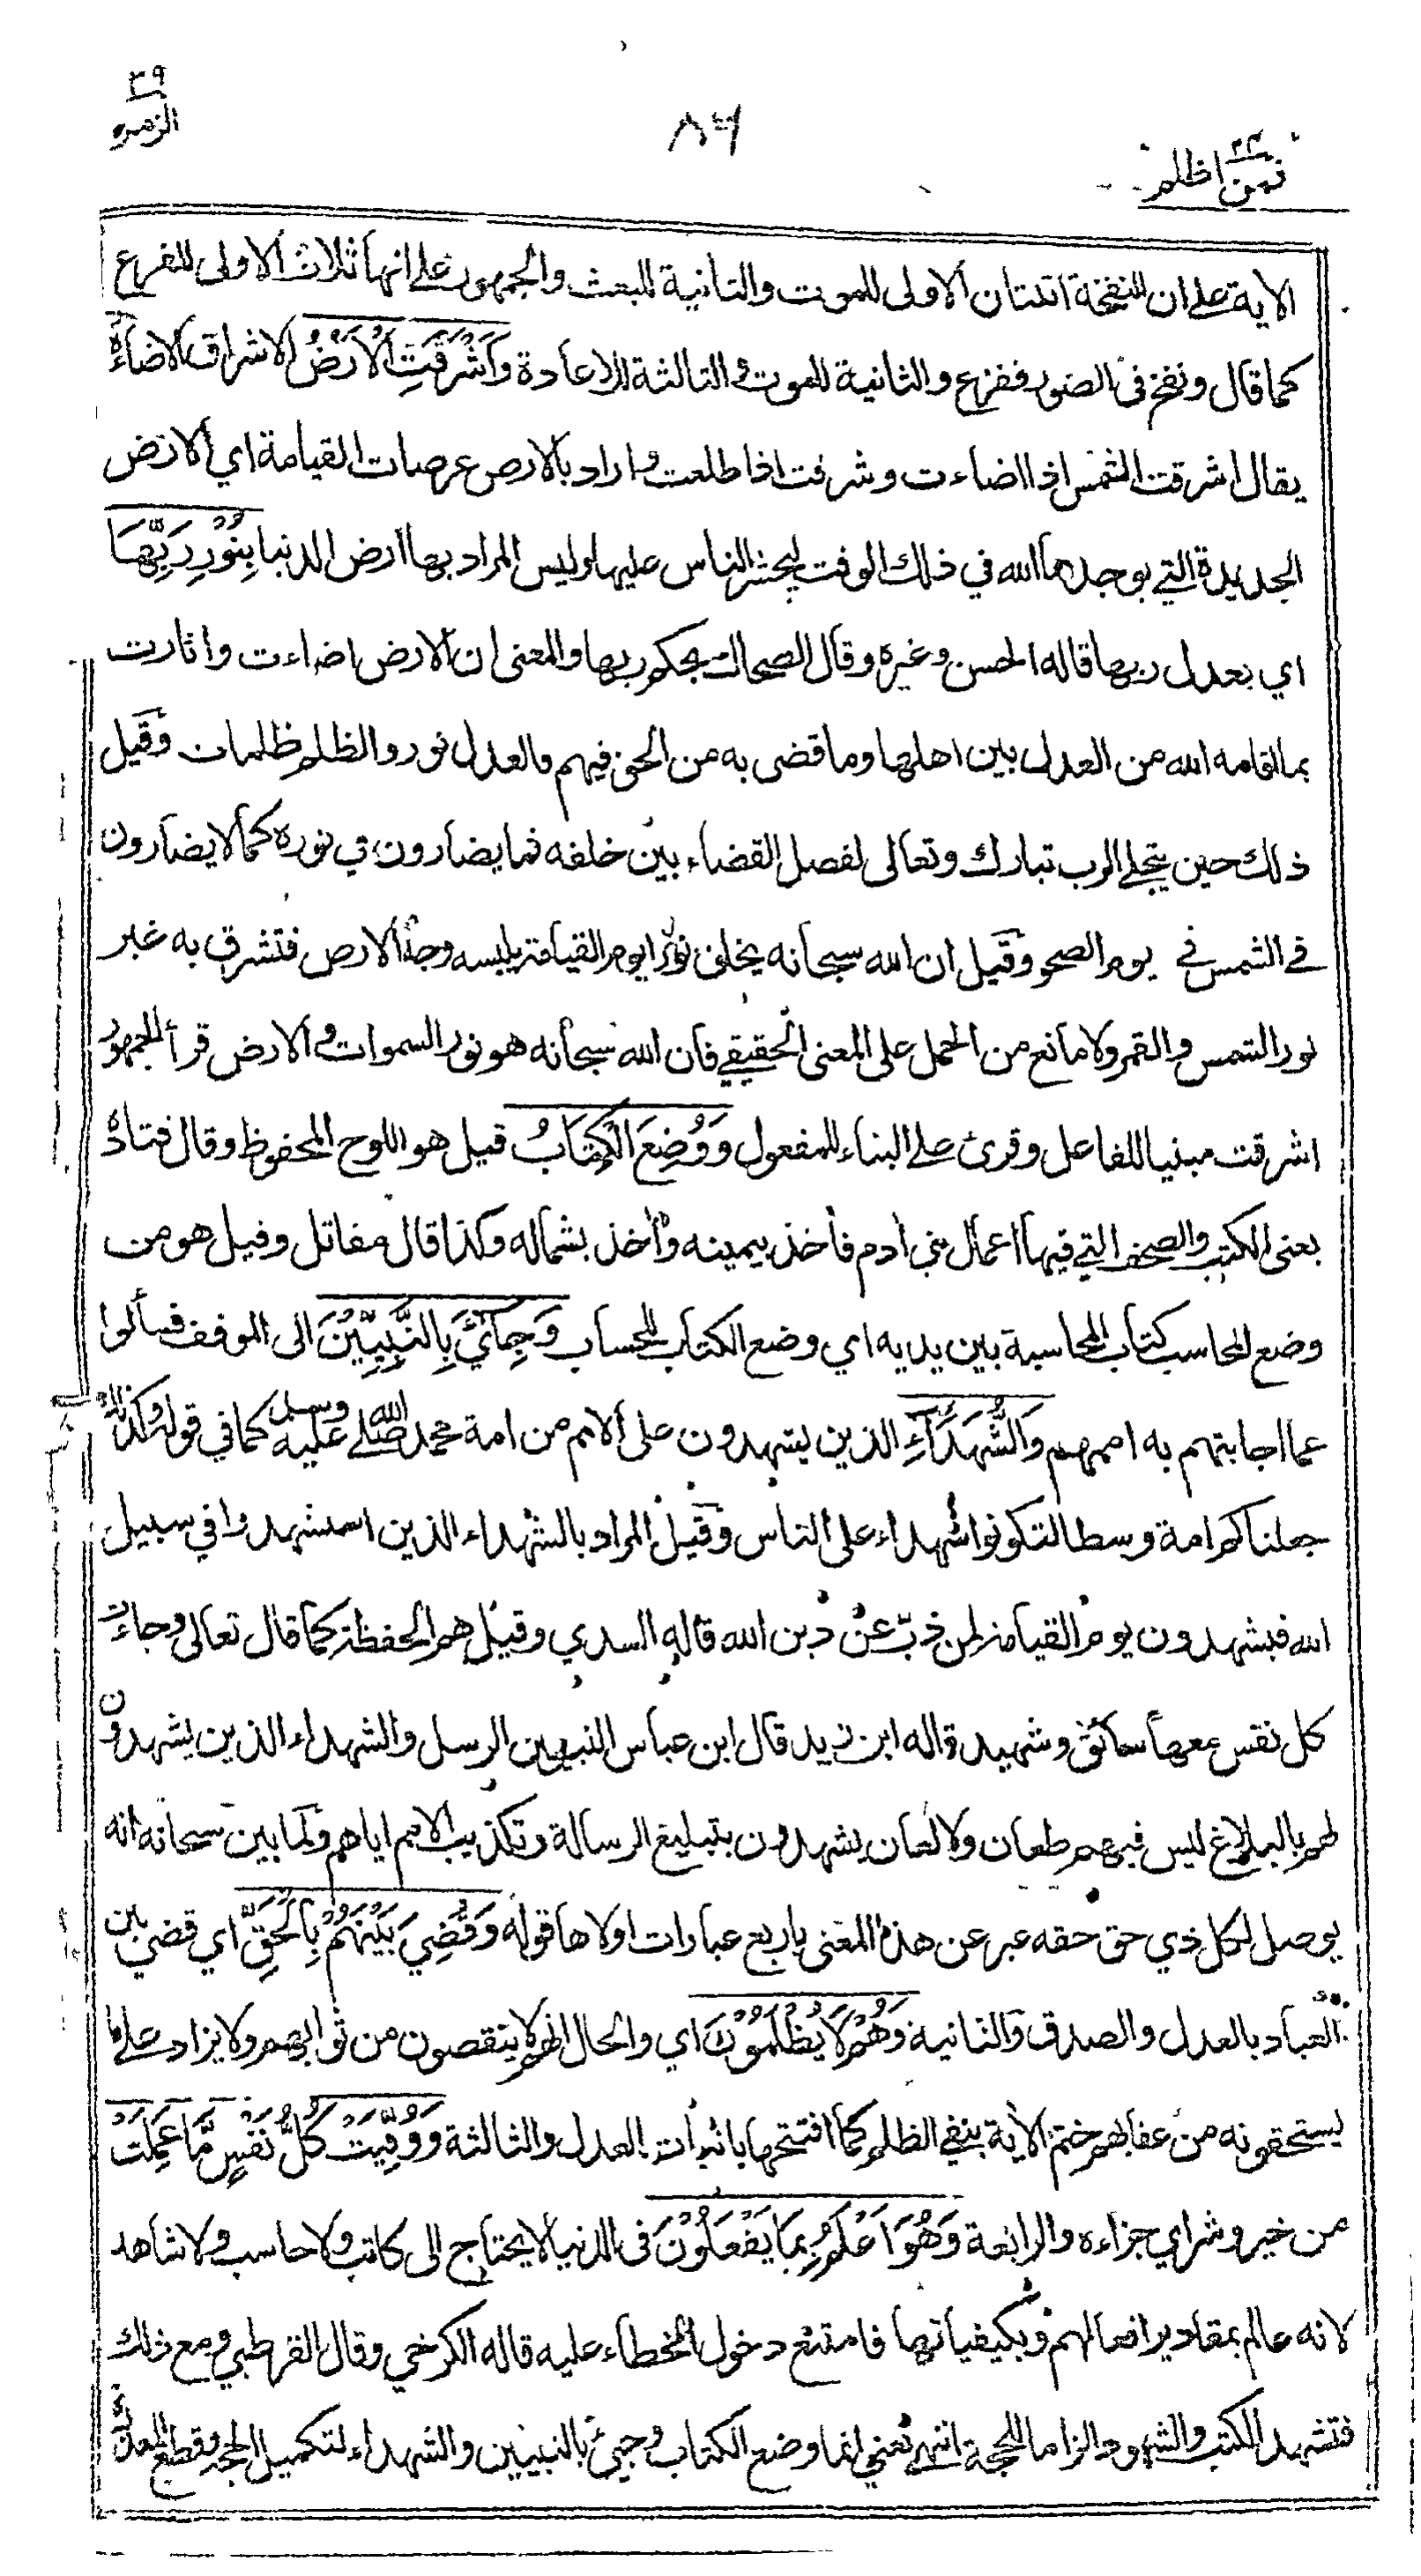 ٣٩
الزمر
٨٦
٢٤
فمن اظلم
الاية على ان النفخة اثنتان الاولى للموت والثانية للبعث والجمهور على انها ثلاث الاولى للفزع
كما قال ونفخ فى الصور ففزع والثانية للموت والثالثة للاعادة وَاَشْرَقَتِ الْاَرْضُ الاشراق الاضاءة
يقال اشرقت الشمس اذا اضاءت وشرقت اذا طلعت واراد بالارض عرصات القيامة اي الارض
الجديدة التي يوجدها الله في ذلك الوقت ليحشر الناس عليها وليس المراد بها ارض الدنيا بِنُوْرِ رَبِّهَا
اي بعدل ربها قاله الحسن وغيره وقال الضحاك بحكم ربها والمعنى ان الارض اضاءت وانارت
بما اقامه الله من العدل بين اهلها وما قضى به من الحق فيهم فالعدل نور والظلم ظلمات وقيل
ذلك حين يتجلى الرب تبارك وتعالى لفصل القضاء بين خلقه فما يضارون في نوره كما لا يضارون
في الشمس في يوم الصحو وقيل ان الله سبحانه يخلق نورا يوم القيامة يلبسه وجه الارض فتشرق به غير
نور الشمس والقمر ولا مانع من الحمل على المعنى الحقيقي فان الله سبحانه هو نور السموات والارض قرأ الجمهور
اشرقت مبنيا للفاعل وقرئ على البناء للمفعول وَوُضِعَ الْكِتَابُ قيل هو اللوح المحفوظ وقال قتادة
يعنى الكتب والصحف التي فيها اعمال بني أدم فأخذ بيمينه وأخذ بشماله وكذا قال مقاتل وقيل هو من
وضع المحاسب كتاب المحاسبة بين يديه اي وضع الكتاب للحساب وَجِائَ بِالنَّبِيِّيْنَ الى الموقف فسألوا
عما اجابتهم به اممهم وَالشُّهَدَآءِ الذين يشهدون على الامم من امة محمد صلى الله عليه وسلم كما في قوله وكذلك
جعلناكم امة وسطا لتكونوا شهداء على الناس وقيل المراد بالشهداء الذين استشهدوا في سبيل
الله فيشهدون يوم القيامة لمن ذبّ عن دين الله قاله السدي وقيل هم الحفظة كما قال تعالى وجاءت
كل نفس معها سائق وشهيد قاله ابن زيد قال ابن عباس النبيين الرسل والشهداء الذين يشهدون
لهم بالبلاغ ليس فيهم طعان ولا لعان يشهدون بتبليغ الرسالة وتكذيب الامم اياهم ولما بين سبحانه انه
يوصل لكل ذي حق حقه عبر عن هذا المعنى باربع عبارات اولاها قوله وَقُضِيَ بَيْنَهُمْ بِالْحَقِّ اي قضي بين
العباد بالعدل والصدق والثانية وَهُمْ لَا يُظْلَمُوْنَ اي والحال انهم لا ينقصون من ثوابهم ولا يزاد على ما
يستحقونه من عقابهم ختم الأية بنفي الظلم كما افتتحها باثبات العدل والثالثة وَوُفِّيَتْ كُلُّ نَفْسٍ مَّا عَمِلَتْ
من خير وشر اي جزاءه والرابعة وَهُوَ اَعْلَمُ بِمَا يَفْعَلُوْنَ فى الدنيا لا يحتاج الى كاتب ولا حاسب ولا شاهد
لانه عالم بمقادير افعالهم وبكيفياتها فامتنع دخول الخطاء عليه قاله الكرخي وقال القرطبي ومع ذلك
فتشهد الكتب والشهود الزاما للحجة انتهى يعني انما وضع الكتاب وجيئ بالنبيين والشهداء لتكميل الحجة وقطع المعذرة